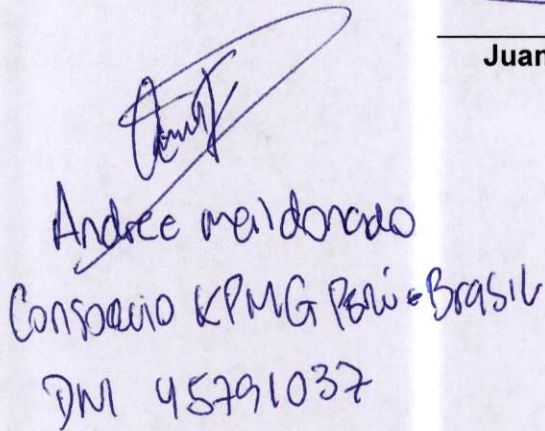 Juan
Andree maldonado
Consorcio KPMG Perú - Brasil
DNI 45791037